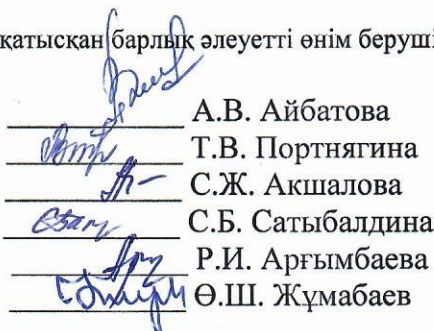 қатысқан барлық әлеуетті өнім беруші
А.В. Айбатова
Т.В. Портнягина
С.Ж. Акшалова
С.Б. Сатыбалдина
Р.И. Арғымбаева
Ө.Ш. Жұмабаев